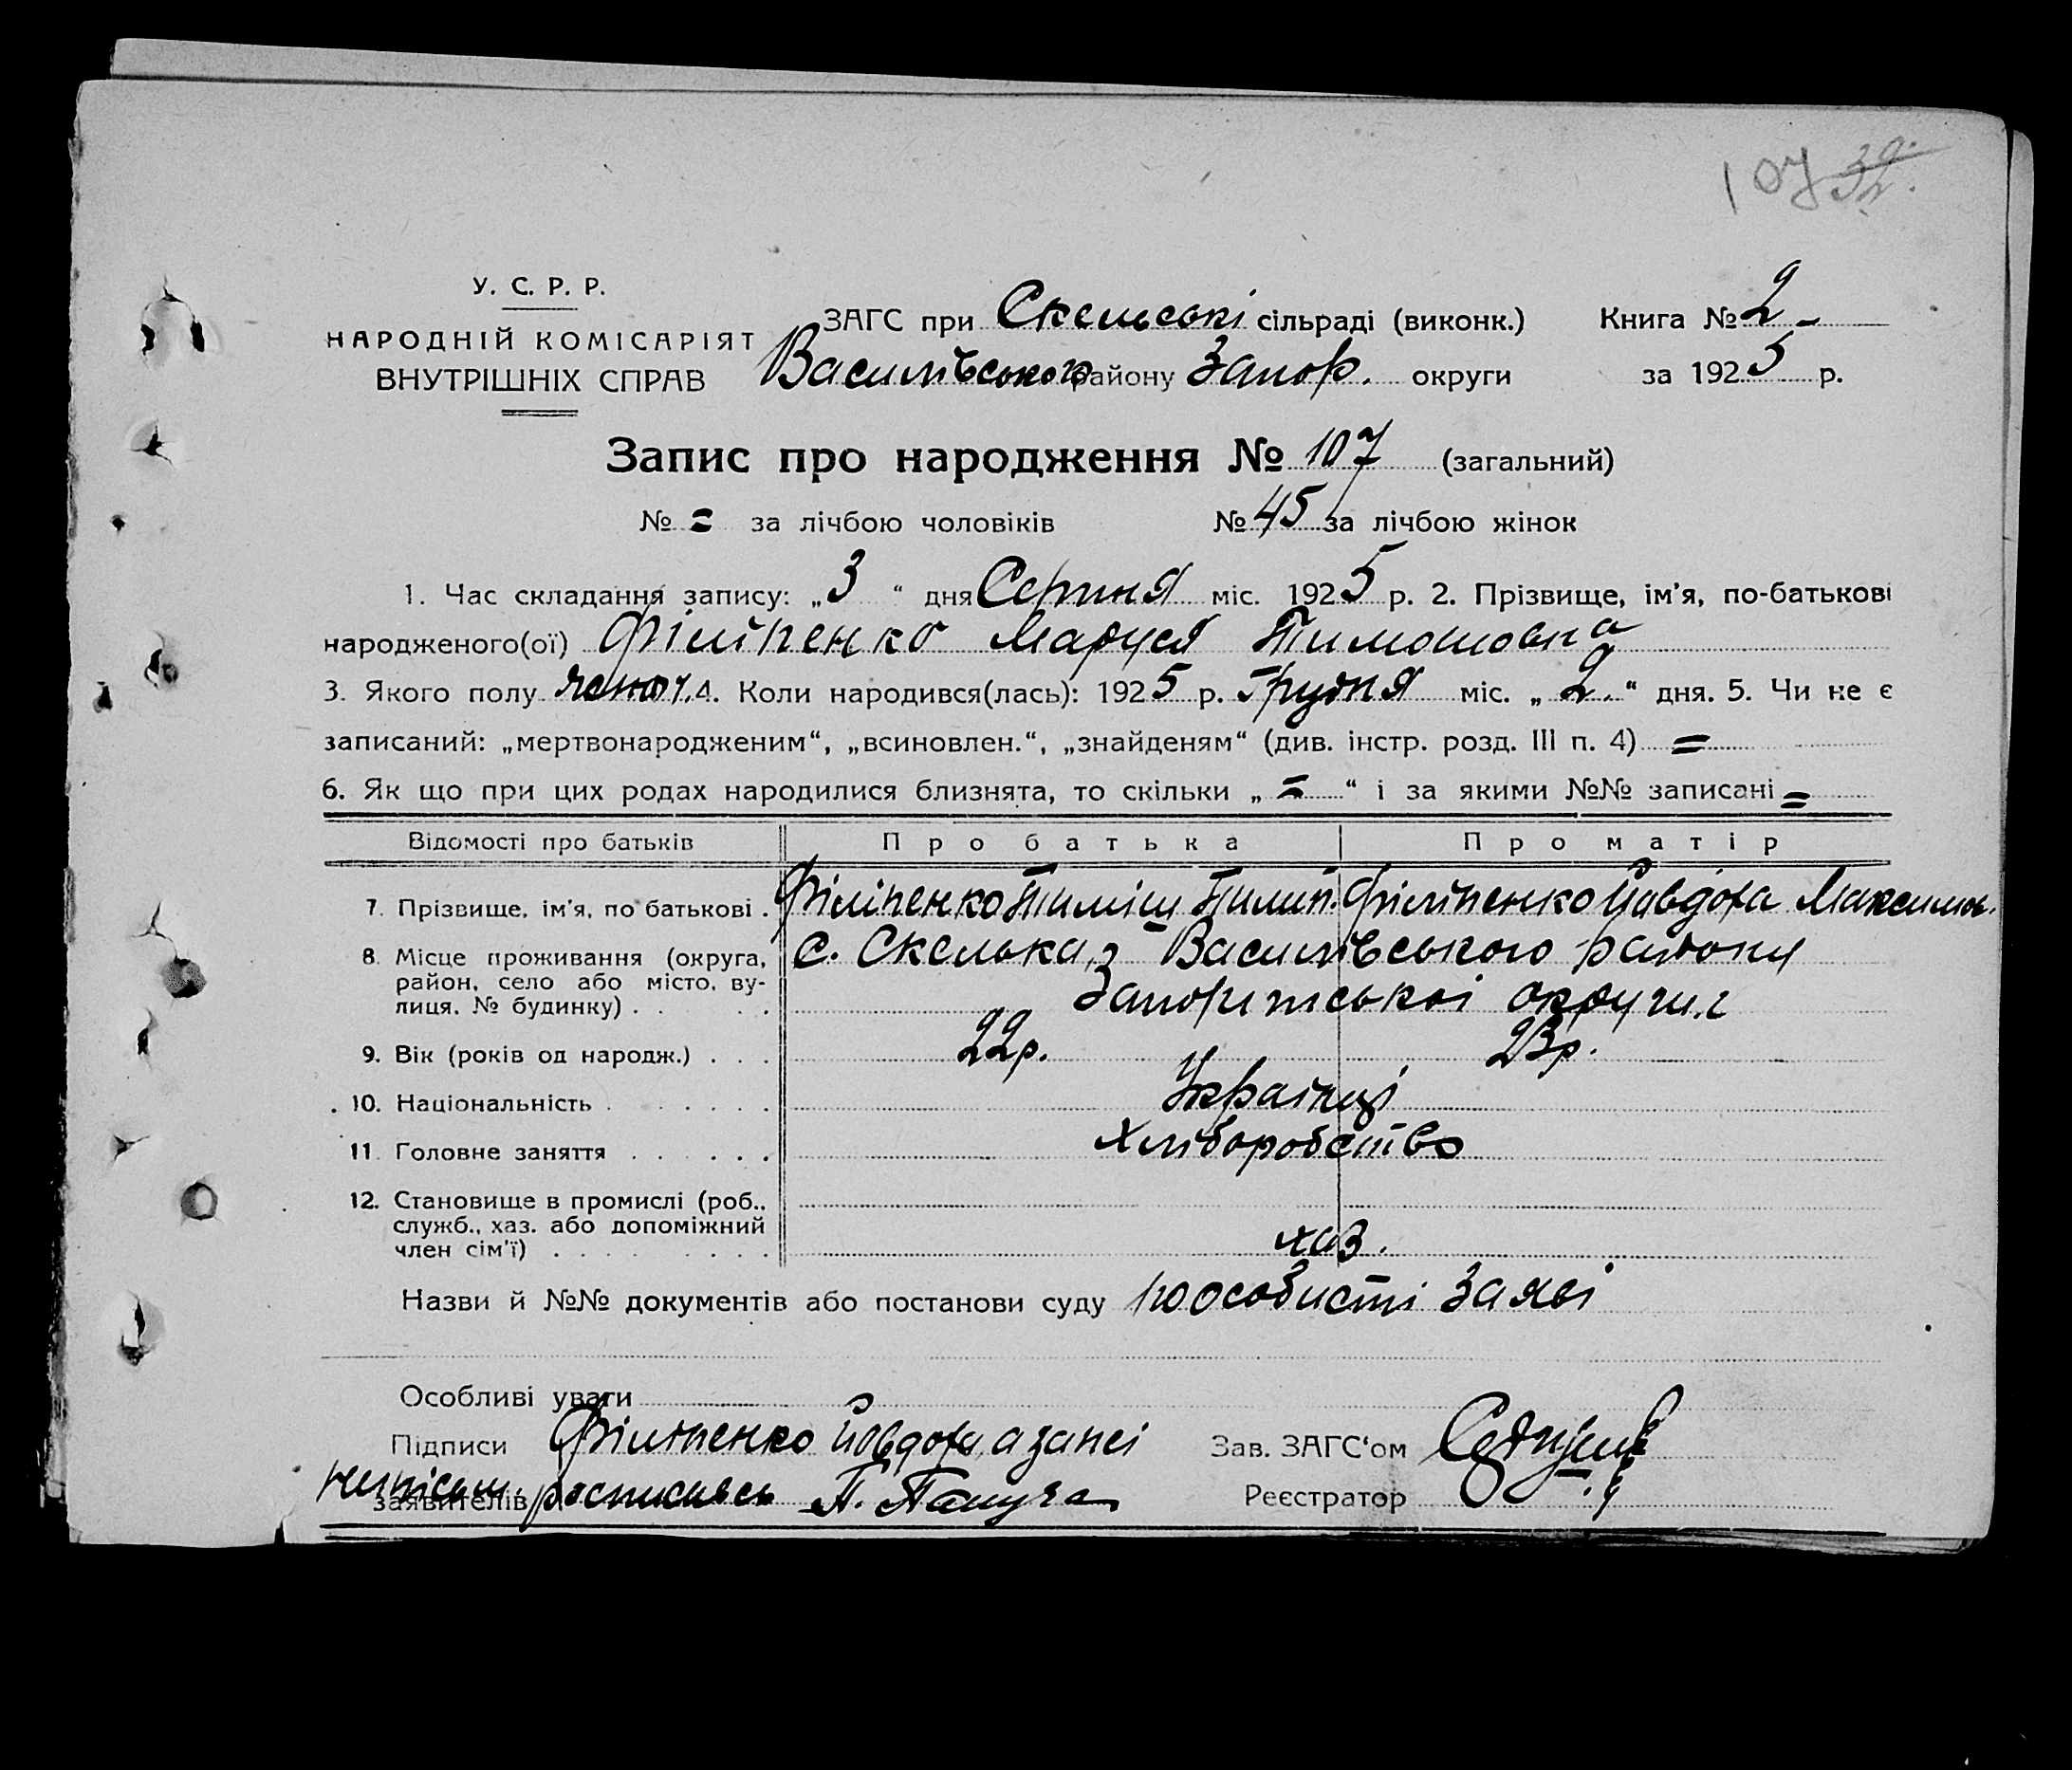 107
У. С. Р. Р.
НАРОДНІЙ КОМІСАРІЯТ
ВНУТРІШНІХ СПРАВ
ЗАГС при Скельські сільраді (виконк.)
Василівського району Запор. округи
Книга № 2
за 1925 р.
Запис про народження № 107 (загальний)
№ = за лічбою чоловіків № 45 за лічбою жінок
1. Час складання запису: „3“ дня Серпня міс. 1925 р. 2. Прізвище, ім'я, по-батькові
народженого(ої) Філіпенко Маруся Тимошовна
3. Якого полу жіноч. 4. Коли народився(лась): 1925 р. Грудня міс. „2.“ дня. 5. Чи не є
записаний: „мертвонародженим“, „всиновлен.“, „знайденям“ (див. інстр. розд. III п. 4) =
6. Як що при цих родах народилися близнята, то скільки „=“ і за якими №№ записані =
Відомості про батьків Про батька Про матір
7. Прізвище, ім'я, по батькові . Філіпенко Тиміш Пилип. Філіпенко Йовдоха Максимов.
8. Місце проживання (округа, район, село або місто, вулиця, № будинку) . . . . с. Скелька, Василівського району
Запоріжської округи
9. Вік (років од народж.) . . . 22р. 23р.
10. Національність . . . . . . . Українці
11. Головне заняття . . . . . . Хліборобство
12. Становище в промислі (роб., служб., хаз. або допоміжний член сім'ї) . . . . . . . . хаз.
Назви й №№ документів або постанови суду по особисті заяві
Особливі уваги
Підписи Філіпенко Йовдоха, а за неї
заявителів неписьм. росписався П.
Зав. ЗАГС'ом
Реєстратор